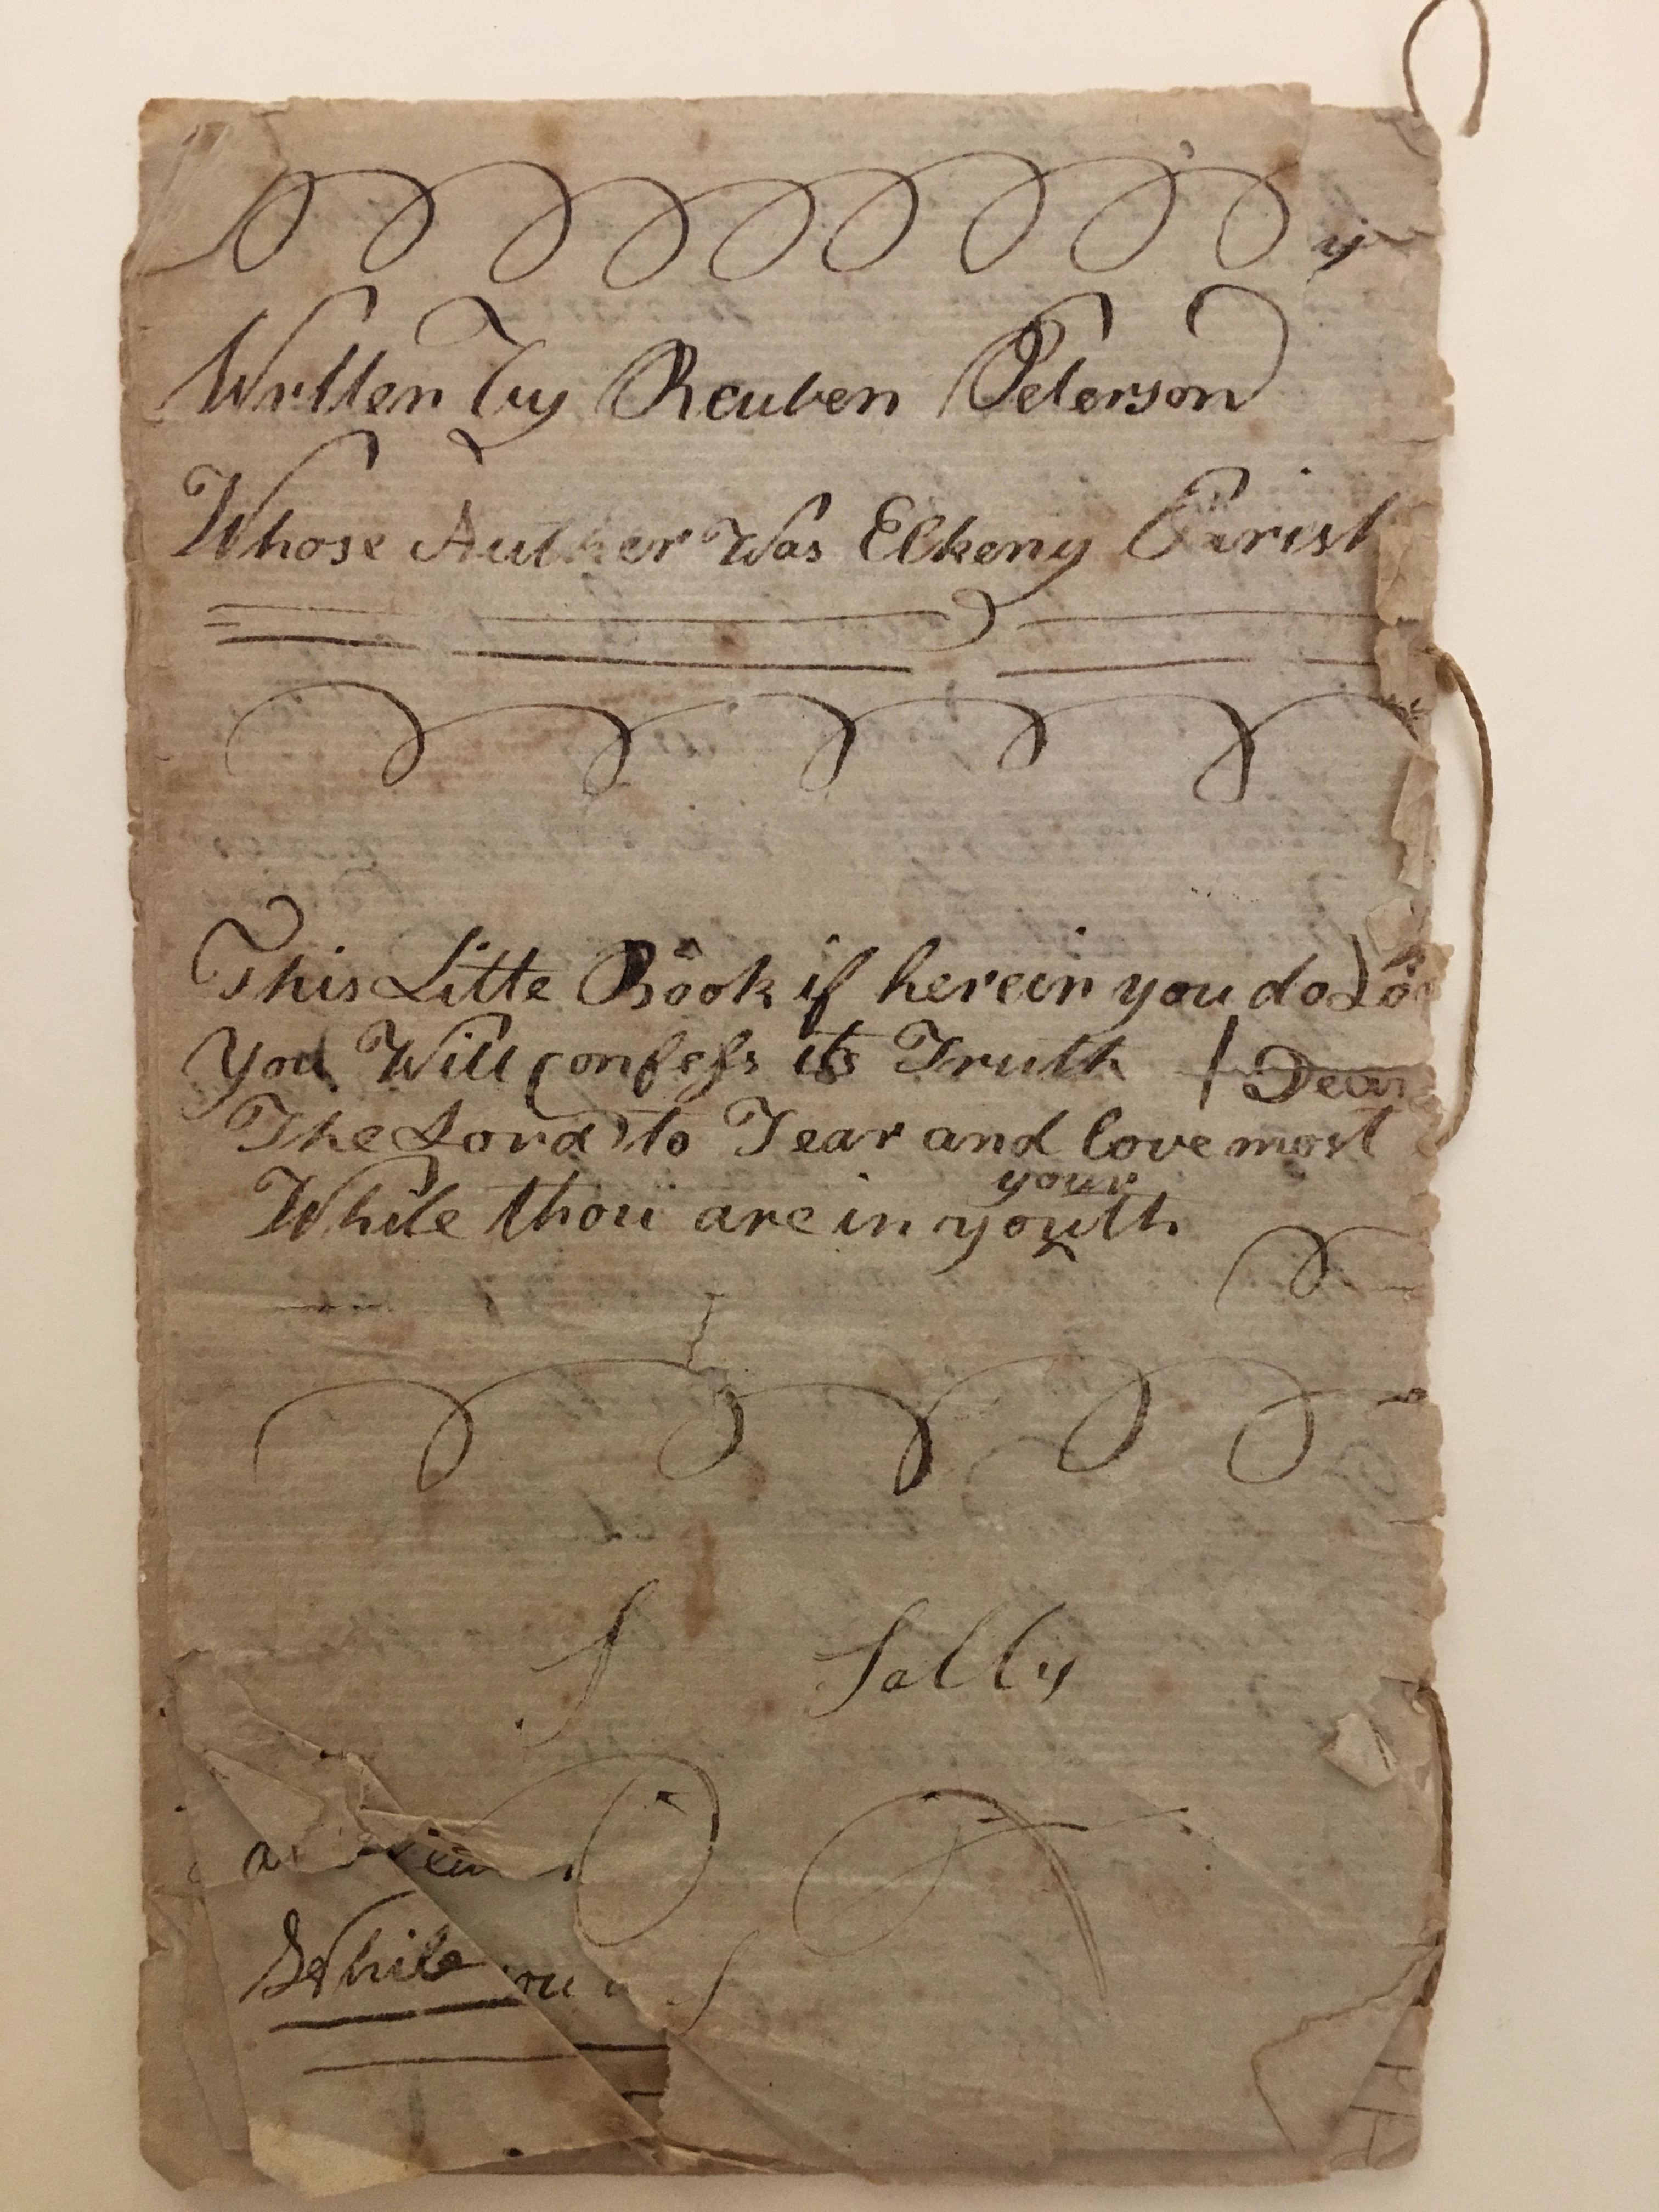 Written by Reuben Peterson
Whose Auther Was Elkeny Parish
This Litte Book if herein you do
You Will confess its Truth Dear
The Lord to Fear and love most
your
While thou are in youth
S Sally
While